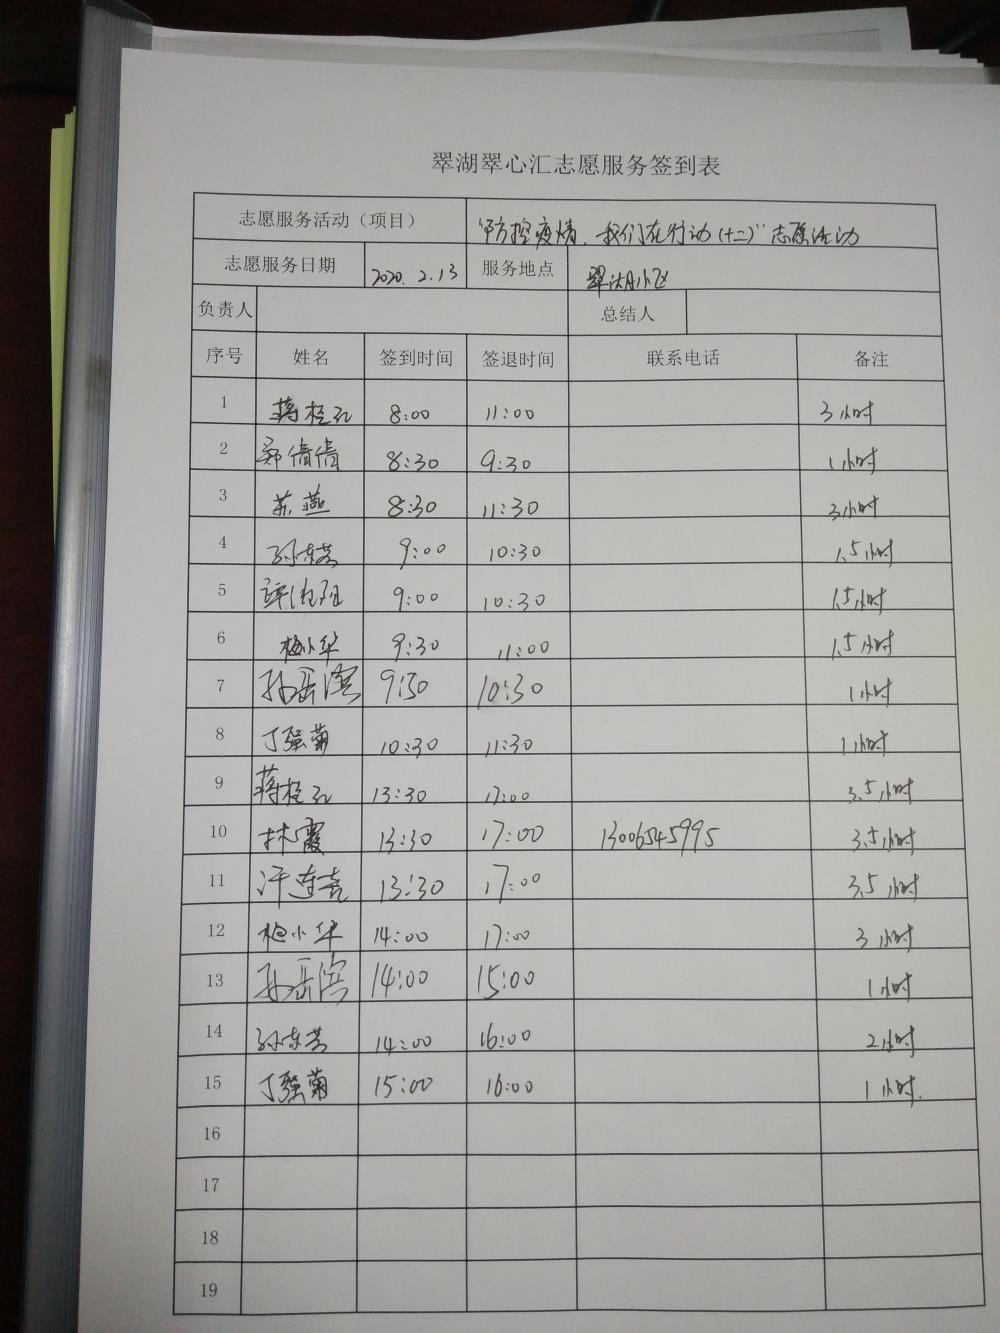 翠湖翠心汇志愿服务签到表
志愿服务活动（项目） "防控疫情，我们在行动(十二)"志愿活动
志愿服务日期 2020.2.13 服务地点 翠湖小区
负责人 总结人
序号 姓名 签到时间 签退时间 联系电话 备注
1 蒋桂孔 8:00 11:00 3小时
2 郑倩倩 8:30 9:30 1小时
3 苏燕 8:30 11:30 3小时
4 孙东芳 9:00 10:30 1.5小时
5 9:00 10:30 1.5小时
6 梅小华 9:30 11:00 1.5小时
7 孙岳滨 9:30 10:30 1小时
8 丁强菊 10:30 11:30 1小时
9 蒋桂孔 13:30 17:00 3.5小时
10 林霞 13:30 17:00 13006545995 3.5小时
11 汗连亮 13:30 17:00 3.5小时
12 梅小华 14:00 17:00 3小时
13 孙岳滨 14:00 15:00 1小时
14 孙东芳 14:00 16:00 2小时
15 丁强菊 15:00 16:00 1小时.
16
17
18
19